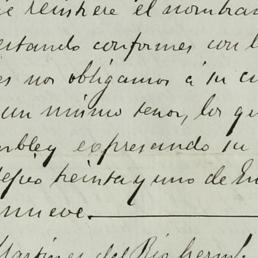 e resistiere el nombra
estando conformes con l
es nos obligamos á su cu
un mismo tenor, los qu
mbley expresando su
treinta y uno de En
nueve.
Martinez del Rio herm